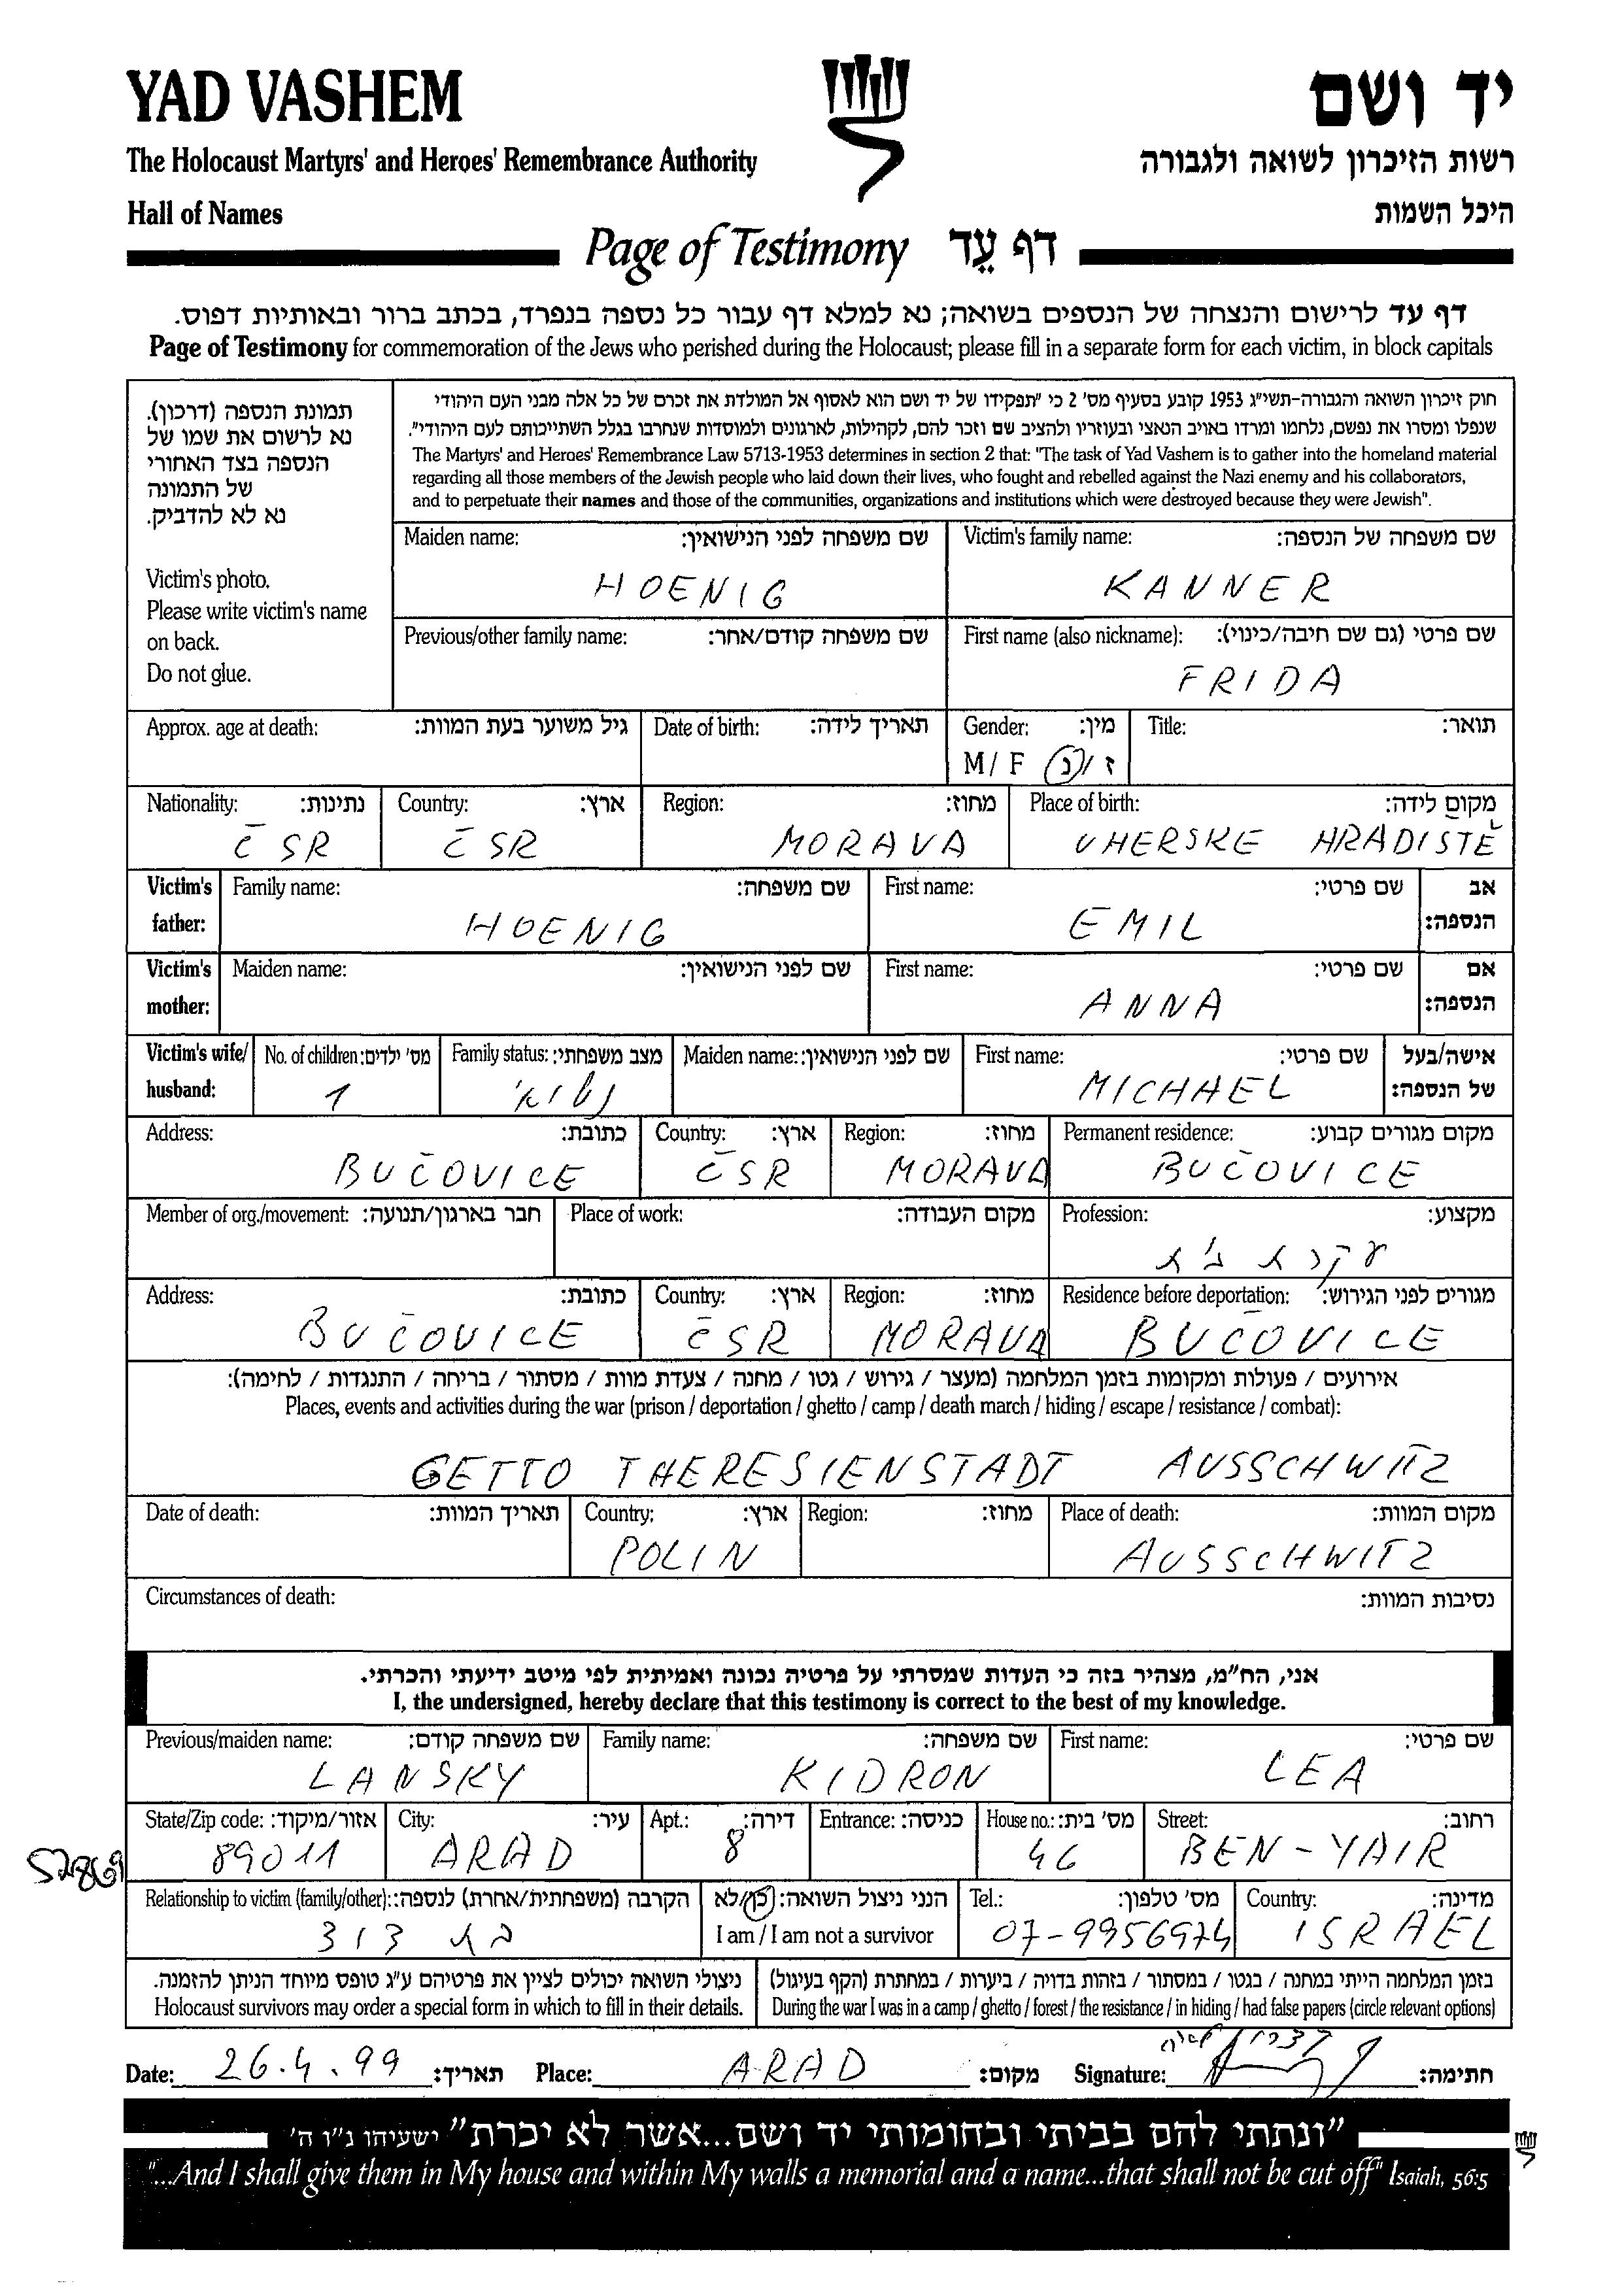 YAD VASHEM
יד ושם
The Holocaust Martyrs' and Heroes' Remembrance Authority
רשות הזיכרון לשואה ולגבורה
Hall of Names
היכל השמות
Page of Testimony דף עֵד
דף עד לרישום והנצחה של הנספים בשואה; נא למלא דף עבור כל נספה בנפרד, בכתב ברור ובאותיות דפוס.
Page of Testimony for commemoration of the Jews who perished during the Holocaust; please fill in a separate form for each victim, in block capitals
תמונת הנספה (דרכון).
נא לרשום את שמו של
הנספה בצד האחורי
של התמונה
נא לא להדביק.
Victim's photo.
Please write victim's name
on back.
Do not glue.
חוק זיכרון השואה והגבורה-תשי"ג 1953 קובע בסעיף מס' 2 כי "תפקידו של יד ושם הוא לאסוף אל המולדת את זכרם של כל אלה מבני העם היהודי
שנפלו ומסרו את נפשם, נלחמו ומרדו באויב הנאצי ובעוזריו ולהציב שם וזכר להם, לקהילות, לארגונים ולמוסדות שנחרבו בגלל השתייכותם לעם היהודי".
The Martyrs' and Heroes' Remembrance Law 5713-1953 determines in section 2 that: "The task of Yad Vashem is to gather into the homeland material
regarding all those members of the Jewish people who laid down their lives, who fought and rebelled against the Nazi enemy and his collaborators,
and to perpetuate their names and those of the communities, organizations and institutions which were destroyed because they were Jewish".
Maiden name: שם משפחה לפני הנישואין: Victim's family name: שם משפחה של הנספה:
HOENIG KANNER
Previous/other family name: שם משפחה קודם/אחר: First name (also nickname): שם פרטי (גם שם חיבה/כינוי):
FRIDA
Approx. age at death: גיל משוער בעת המוות: Date of birth: תאריך לידה: Gender: מין: Title: תואר:
M / F ז / נ
Nationality: נתינות: Country: ארץ: Region: מחוז: Place of birth: מקום לידה:
ČSR ČSR MORAVA UHERSKE HRADISTĚ
Victim's father: Family name: שם משפחה: First name: שם פרטי: אב הנספה:
HOENIG EMIL
Victim's mother: Maiden name: שם לפני הנישואין: First name: שם פרטי: אם הנספה:
ANNA
Victim's wife/ husband: No. of children: מס' ילדים: Family status: מצב משפחתי: Maiden name: שם לפני הנישואין: First name: שם פרטי: אישה/בעל של הנספה:
1 MICHAEL
Address: כתובת: Country: ארץ: Region: מחוז: Permanent residence: מקום מגורים קבוע:
BUČOVICE ČSR MORAVA BUČOVICE
Member of org./movement: חבר בארגון/תנועה: Place of work: מקום העבודה: Profession: מקצוע:
עקרת בית
Address: כתובת: Country: ארץ: Region: מחוז: Residence before deportation: מגורים לפני הגירוש:
BUČOVICE ČSR MORAVA BUČOVICE
אירועים / פעולות ומקומות בזמן המלחמה (מעצר / גירוש / גטו / מחנה / צעדת מוות / מסתור / בריחה / התנגדות / לחימה):
Places, events and activities during the war (prison / deportation / ghetto / camp / death march / hiding / escape / resistance / combat):
GETTO THERESIENSTADT AUSSCHWITZ
Date of death: תאריך המוות: Country: ארץ: Region: מחוז: Place of death: מקום המוות:
POLIN AUSSCHWITZ
Circumstances of death: נסיבות המוות:
אני, הח"מ, מצהיר בזה כי העדות שמסרתי על פרטיה נכונה ואמיתית לפי מיטב ידיעתי והכרתי.
I, the undersigned, hereby declare that this testimony is correct to the best of my knowledge.
Previous/maiden name: שם משפחה קודם: Family name: שם משפחה: First name: שם פרטי:
LANSKY KIDRON LEA
State/Zip code: אזור/מיקוד: City: עיר: Apt.: דירה: Entrance: כניסה: House no.: מס' בית: Street: רחוב:
89011 ARAD 8 46 BEN-YAIR
Relationship to victim (family/other): הקרבה (משפחתית/אחרת) לנספה: הנני ניצול השואה: כן/לא Tel.: מס' טלפון: Country: מדינה:
בת דוד I am / I am not a survivor 07-9956974 ISRAEL
ניצולי השואה יכולים לציין את פרטיהם ע"ג טופס מיוחד הניתן להזמנה.
Holocaust survivors may order a special form in which to fill in their details.
בזמן המלחמה הייתי במחנה / בגטו / במסתור / בזהות בדויה / ביערות / במחתרת (הקף בעיגול)
During the war I was in a camp / ghetto / forest / the resistance / in hiding / had false papers (circle relevant options)
Date: 26.4.99 תאריך: Place: ARAD מקום: Signature: חתימה:
"ונתתי להם בביתי ובחומותי יד ושם...אשר לא יכרת" ישעיהו נ"ו ה'
"...And I shall give them in My house and within My walls a memorial and a name...that shall not be cut off" Isaiah, 56:5